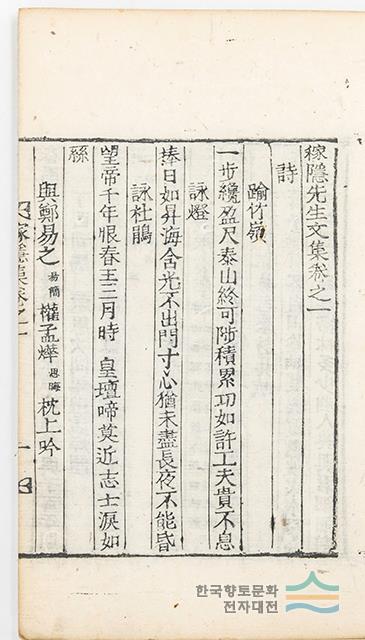 稼隱先生文集卷之一
詩
踰竹嶺
一步纔盈尺泰山終可陟積累功如許工夫貴不息
詠燈
捧日如昇海含光不出門寸心猶未盡長夜不能昏
詠杜鵑
望帝千年恨春王三月時 皇壇啼莫近志士淚如
絲
與鄭易之 易簡 權孟燁 思晦 枕上吟
稼隱集卷之一
一
한국향토문화
전자대전